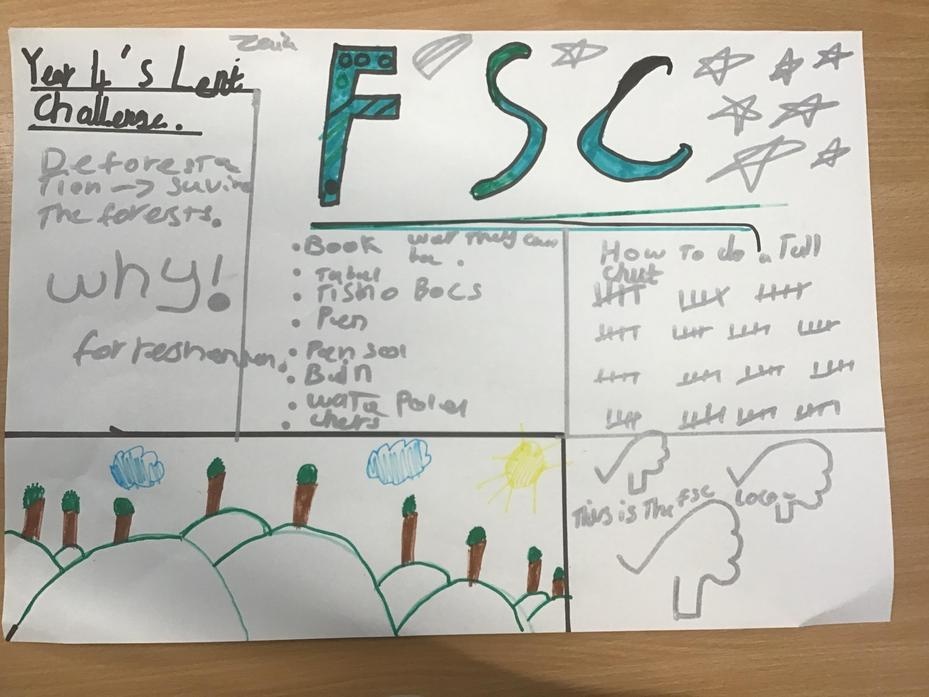 Year 4's Lent
Challenge.
FSC
Deforesta
tion -> saving
the forests.
why!
for reshen
• Book wat they can
be.
• Tabul
• Tisho Bocs
• Pen
• Pen sol
• Buin
• Wata Polel
• Chers
How To do a Tull
Chut
This is The FSC Logo